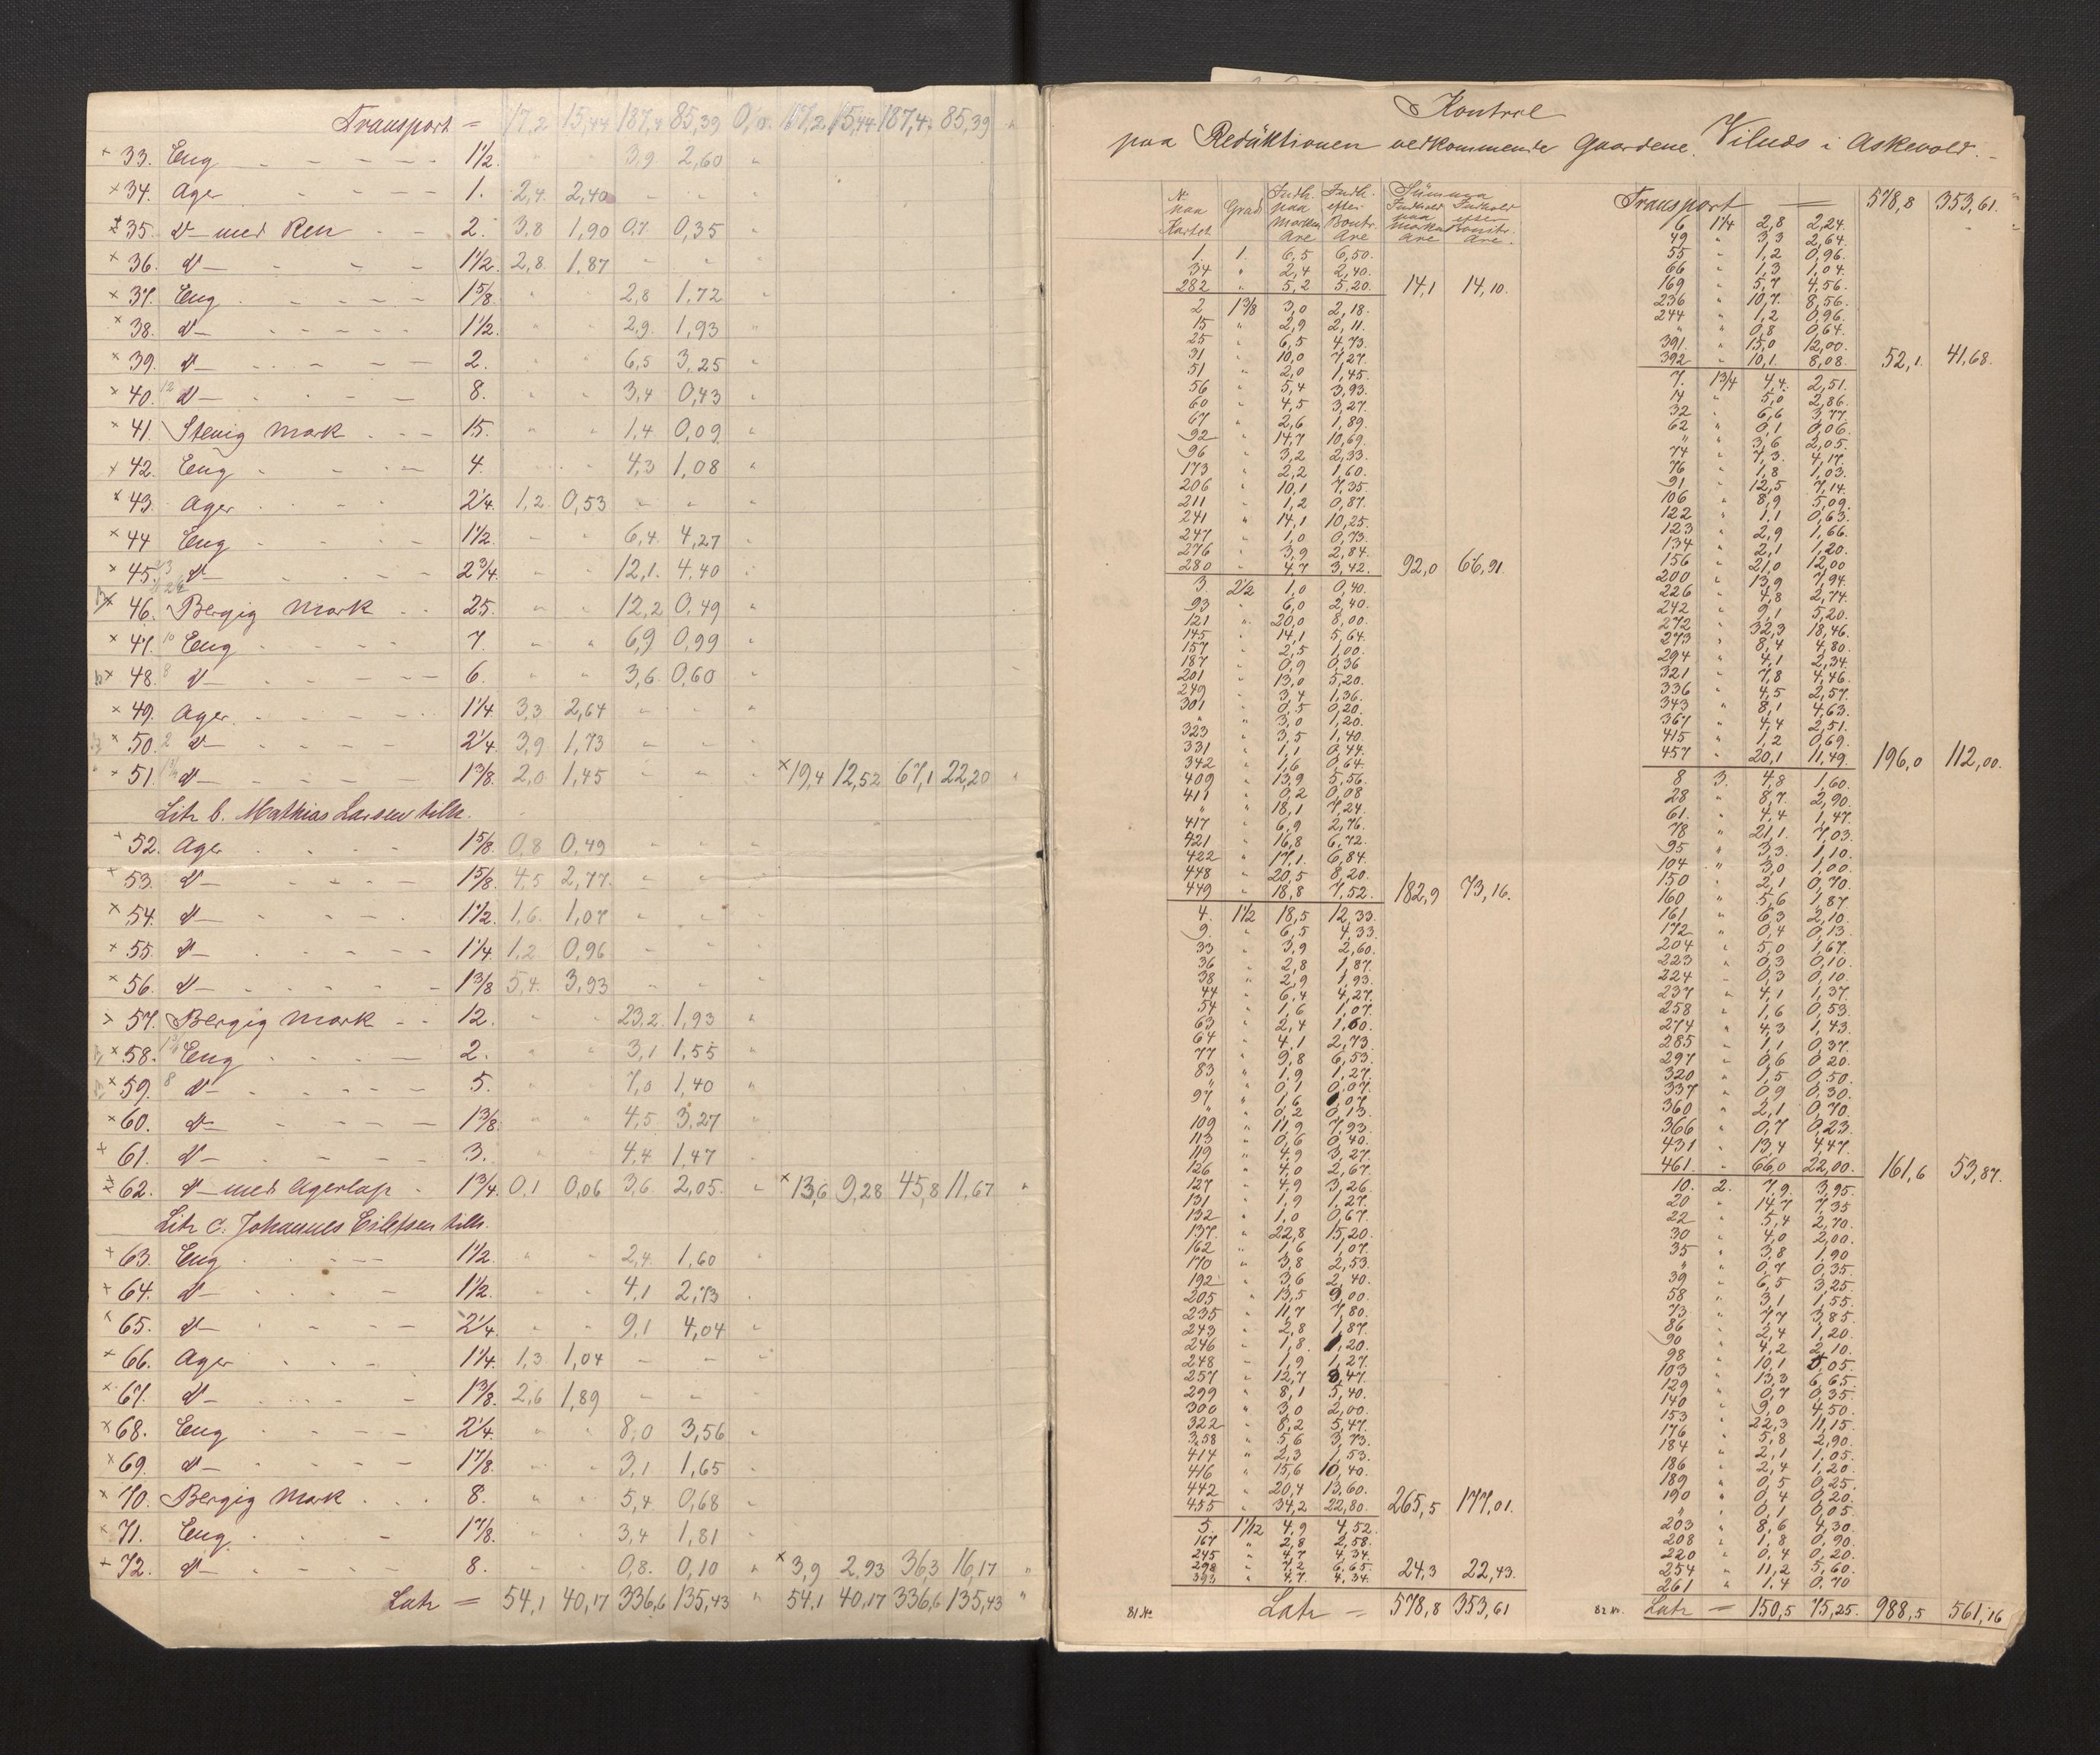 Transport = 17,2 15,44 187,4 85,39 0,0 17,2 15,44 187,4 85,39 "
× 33. Eng 1 1/2. " " 3,9 2,60 "
× 34. Ager 1. 2,4 2,40 " "
× 35. d— med Ren 2. 3,8 1,90 0,7 0,35 "
× 36. d— 1 1/2. 2,8 1,87 " "
× 37. Eng 1 5/8. " " 2,8 1,72 "
× 38. d— 1 1/2. " " 2,9 1,93 "
× 39. d— 2. " " 6,5 3,25 "
× 40. 12 d— 8. " " 3,4 0,43 "
× 41. Stenig Mark 15. " " 1,4 0,09 "
× 42. Eng 4. " " 4,3 1,08 "
× 43. Ager 2 1/4. 1,2 0,53 " "
× 44 Eng 1 1/2. " " 6,4 4,27 "
× 45. d— 2 3/4. " " 12,1 4,40 "
× 46. Bergig Mark 25. " " 12,2 0,49 "
× 47. 10 Eng 7. " " 6,9 0,99 "
× 48. 8 d— 6. " " 3,6 0,60 "
× 49. Ager 1 1/4. 3,3 2,64 " " "
× 50. 2 d— 2 1/4. 3,9 1,73 " " "
× 51. d— 1 3/8. 2,0 1,45 " " " × 19,4 12,52 67,1 22,20 "
Litr b. Mathias Larsen tilh.
× 52. Ager 1 5/8. 0,8 0,49 " "
× 53. d— 1 5/8. 4,5 2,77 " "
× 54. d— 1 1/2. 1,6 1,07 " "
× 55. d— 1 1/4. 1,2 0,96 " "
× 56. d— 1 3/8. 5,4 3,93 " "
× 57. Bergig Mark 12. " " 23,2 1,93 "
× 58. Eng 2. " " 3,1 1,55 "
× 59. 8 d— 5. " " 7,0 1,40 "
× 60. d— 1 3/8. " " 4,5 3,27 "
× 61. d— 3. " " 4,4 1,47 "
× 62. d— med Agerlap 1 3/4. 0,1 0,06 3,6 2,05 " × 13,6 9,28 45,8 11,67 "
Litr c. Johannes Eilefsen tilh.
× 63. Eng 1 1/2. " " 2,4 1,60 "
× 64. d— 1 1/2. " " 4,1 2,73 "
× 65. d— 2 1/4. " " 9,1 4,04 "
× 66. Ager 1 1/4. 1,3 1,04 " " "
× 67. d— 1 3/8. 2,6 1,89 " " "
× 68. Eng 2 1/4. " " 8,0 3,56 "
× 69. d— 1 7/8. " " 3,1 1,65 "
× 70. Bergig Mark 8. " " 5,4 0,68 "
× 71. Eng 1 7/8. " " 3,4 1,81 "
× 72. d— 8. " " 0,8 0,10 " × 3,9 2,93 36,3 16,17 "
Latr = 54,1 40,17 336,6 135,43 " 54,1 40,17 336,6 135,43 "
Kontrol
paa Reduktionen vedkommende Gaardene Vilnæs i Askevold.
Nr. paa Kartet Grad Indh. paa Marken Are Indh. efter Bontr. Are Summa Indhold paa Marken Are Indhold efter Bonitr. Are.
1. 1. 6,5 6,50.
34 " 2,4 2,40.
282 " 5,2 5,20. 14,1 14,10.
2 1 3/8 3,0 2,18.
15 " 2,9 2,11.
25 " 6,5 4,73.
31 " 10,0 7,27.
51 " 2,0 1,45.
56 " 5,4 3,93.
60 " 4,5 3,27.
67 " 2,6 1,89.
92 " 14,7 10,69.
96 " 3,2 2,33.
173 " 2,2 1,60.
206 " 10,1 7,35
211 " 1,2 0,87.
241 " 14,1 10,25.
247 " 1,0 0,73.
276 " 3,9 2,84.
280 " 4,7 3,42. 92,0 66,91.
3. 2 1/2 1,0 0,40.
93 " 6,0 2,40.
121 " 20,0 8,00.
145 " 14,1 5,64.
157 " 2,5 1,00.
187 " 0,9 0,36
201 " 13,0 5,20.
249 " 3,4 1,36.
301 " 0,5 0,20.
" " 3,0 1,20.
323 " 3,5 1,40
331 " 1,1 0,44.
342 " 1,6 0,64.
409 " 13,9 5,56.
411 " 0,2 0,08
" " 18,1 7,24.
417 " 6,9 2,76.
421 " 16,8 6,72.
422 " 17,1 6,84.
448 " 20,5 8,20.
449 " 18,8 7,52. 182,9 73,16.
4. 1 1/2 18,5 12,33.
9. " 6,5 4,33.
33 " 3,9 2,60.
36 " 2,8 1,87.
38 " 2,9 1,93.
44 " 6,4 4,27.
54 " 1,6 1,07.
63 " 2,4 1,60.
64 " 4,1 2,73.
77 " 9,8 6,53.
83 " 1,9 1,27.
" " 0,1 0,07.
97 " 1,6 1,07.
" " 0,2 0,13.
109 " 11,9 7,93.
113 " 0,6 0,40.
119 " 4,9 3,27.
126 " 4,0 2,67.
127 " 4,9 3,26.
131 " 1,9 1,27.
132 " 1,0 0,67.
137. " 22,8 15,20.
162 " 1,6 1,07.
170 " 3,8 2,53.
192 " 3,6 2,40.
205 " 13,5 9,00.
235 " 11,7 7,80.
243 " 2,8 1,87.
246 " 1,8 1,20.
248 " 1,9 1,27.
257 " 12,7 8,47.
299 " 8,1 5,40.
300 " 3,0 2,00.
322 " 8,2 5,47.
358 " 5,6 3,73.
414 " 2,3 1,53.
416 " 15,6 10,40.
442 " 20,4 13,60.
455 " 34,2 22,80. 265,5 177,01.
5. 1 1/12 4,9 4,52.
167 " 2,8 2,58.
245 " 4,7 4,34.
298 " 7,2 6,65.
393 " 4,7 4,34. 24,3 22,43.
81 Nr. Latr = 578,8 353,61
Transport = 578,8 353,61.
6 1 1/4 2,8 2,24.
49 " 3,3 2,64.
55 " 1,2 0,96.
66 " 1,3 1,04.
169 " 5,7 4,56.
236 " 10,7 8,56.
244 " 1,2 0,96.
" " 0,8 0,64.
391. " 15,0 12,00.
392 " 10,1 8,08. 52,1 41,68.
7. 1 3/4 4,4 2,51.
14 " 5,0 2,86.
32 " 6,6 3,77.
62 " 0,1 0,06.
" " 3,6 2,05.
74 " 7,3 4,17.
76 " 1,8 1,03.
91 " 12,5 7,14.
106 " 8,9 5,09.
122 " 1,1 0,63.
123 " 2,9 1,66.
134 " 2,1 1,20.
156 " 21,0 12,00
200 " 13,9 7,94.
226 " 4,8 2,74.
242 " 9,1 5,20.
272 " 32,3 18,46.
273 " 8,4 4,80.
294 " 4,1 2,34.
321 " 7,8 4,46.
336 " 4,5 2,57.
343 " 8,1 4,63.
367 " 4,4 2,51.
415 " 1,2 0,69.
457 " 20,1 11,49. 196,0 112,00.
8 3. 4,8 1,60.
28 " 8,7 2,90.
61. " 4,4 1,47.
78 " 21,1 7,03.
95 " 3,3 1,10.
104 " 3,0 1,00.
150 " 2,1 0,70.
160 " 5,6 1,87.
161 " 6,3 2,10.
172 " 0,4 0,13.
204 " 5,0 1,67.
223 " 0,3 0,10.
224 " 0,3 0,10.
237 " 4,1 1,37.
258 " 1,6 0,53.
274 " 4,3 1,43.
285 " 1,1 0,37.
297 " 0,6 0,20.
320 " 1,5 0,50.
337 " 0,9 0,30.
360 " 2,1 0,70.
366 " 0,7 0,23.
431 " 13,4 4,47.
461. " 66,0 22,00. 161,6 53,87.
10. 2. 7,9 3,95.
20 " 14,7 7,35
22 " 5,4 2,70.
30 " 4,0 2,00.
35 " 3,8 1,90
" " 0,7 0,35.
39 " 6,5 3,25.
58 " 3,1 1,55.
73 " 7,7 3,85.
86 " 2,4 1,20.
90 " 4,2 2,10.
98 " 10,1 5,05.
103 " 13,3 6,65.
129 " 0,7 0,35.
140 " 9,0 4,50.
153 " 22,3 11,15.
176 " 5,8 2,90.
184 " 2,1 1,05.
186 " 2,4 1,20.
189 " 0,5 0,25.
190 " 0,4 0,20.
" " 0,1 0,05.
203 " 8,6 4,30.
208 " 1,8 0,90.
220 " 0,4 0,20.
254 " 11,2 5,60.
261 " 1,4 0,70
82 Nr. Latr = 150,5 75,25. 988,5 561,16